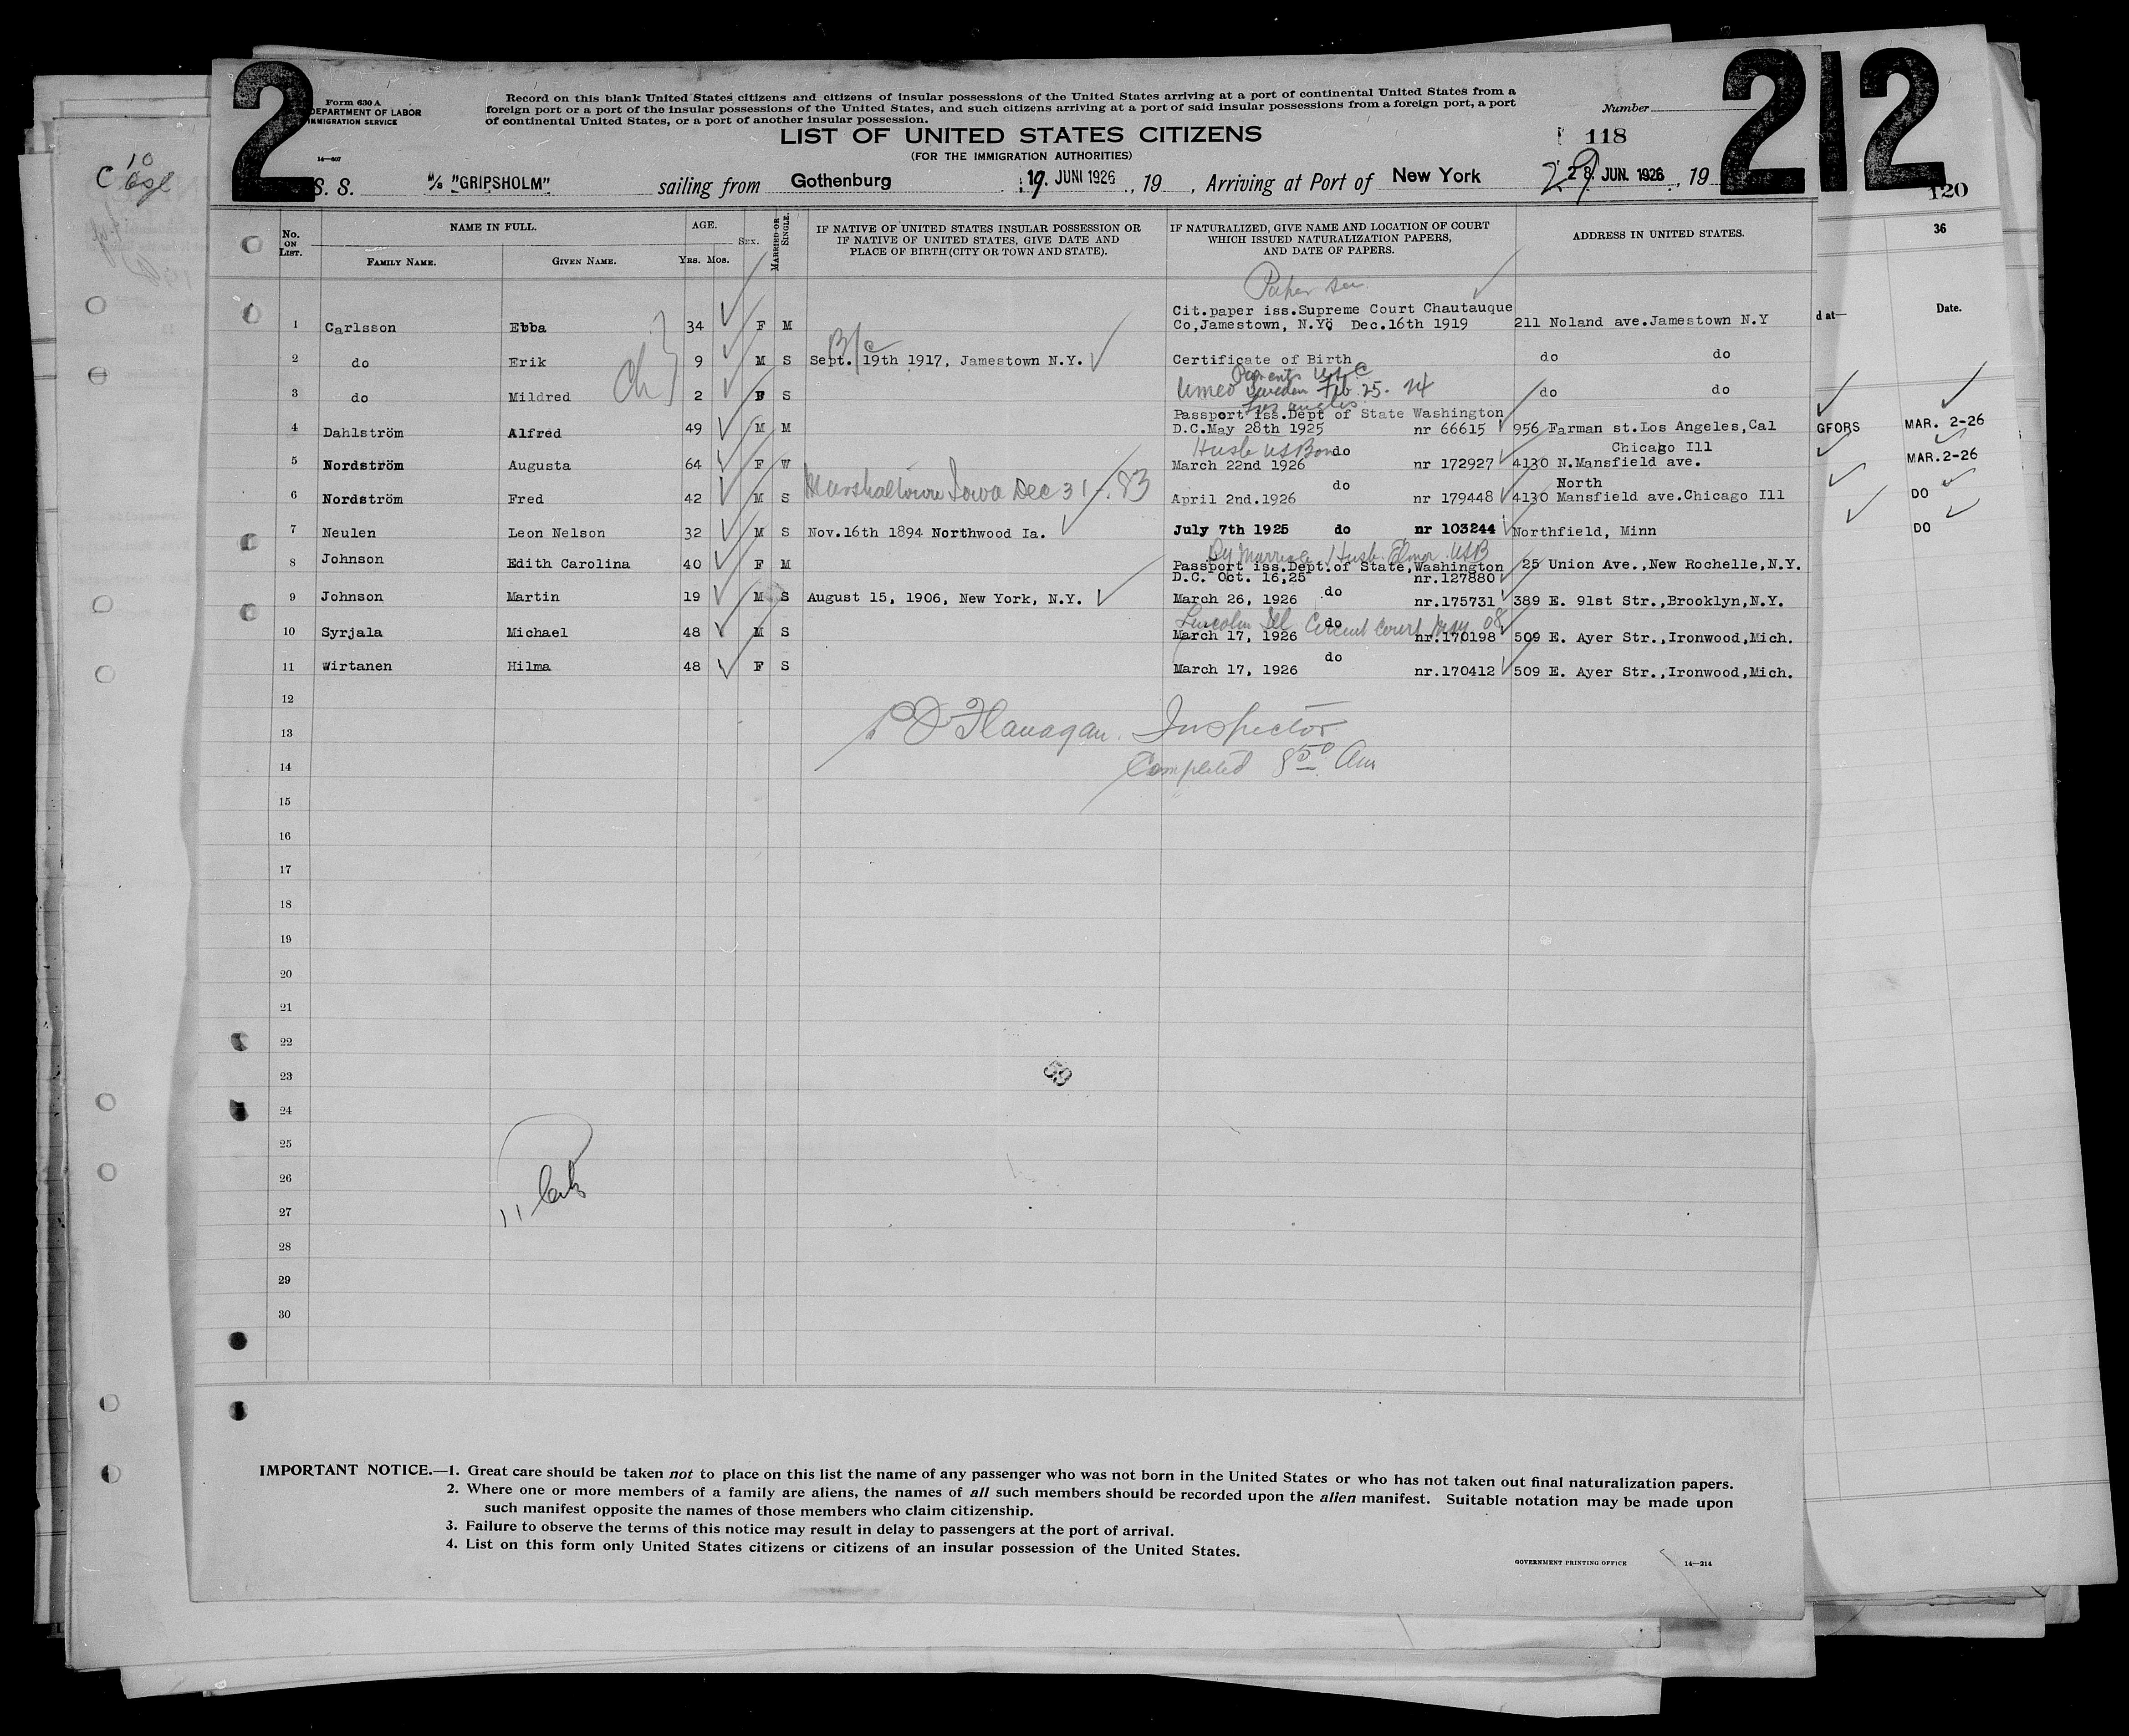 2
212
Form 630 A
DEPARTMENT OF LABOR
IMMIGRATION SERVICE
14—407
Record on this blank United States citizens and citizens of insular possessions of the United States arriving at a port of continental United States from a
foreign port or a port of the insular possessions of the United States, and such citizens arriving at a port of said insular possessions from a foreign port, a port
of continental United States, or a port of another insular possession.
Number
LIST OF UNITED STATES CITIZENS
(FOR THE IMMIGRATION AUTHORITIES)
118
S. S. M/S "GRIPSHOLM" sailing from Gothenburg 19. JUNI 1926, 19 , Arriving at Port of New York 28. JUN. 1926, 19
29
120
No. ON LIST.
NAME IN FULL.
FAMILY NAME. GIVEN NAME.
AGE.
YRS. MOS.
SEX.
MARRIED OR SINGLE.
IF NATIVE OF UNITED STATES INSULAR POSSESSION OR
IF NATIVE OF UNITED STATES, GIVE DATE AND
PLACE OF BIRTH (CITY OR TOWN AND STATE).
IF NATURALIZED, GIVE NAME AND LOCATION OF COURT
WHICH ISSUED NATURALIZATION PAPERS,
AND DATE OF PAPERS.
ADDRESS IN UNITED STATES.
36
d at— Date.
Paper
Cit.paper iss.Supreme Court Chautauque
1 Carlsson Ebba 34 F M Co,Jamestown, N.Y. Dec.16th 1919 211 Noland ave.Jamestown N.Y
B/C
2 do Erik 9 M S Sept. 19th 1917, Jamestown N.Y. Certificate of Birth do do
Ch
Parents USC
3 do Mildred 2 F S Umeo Sweden Feb 25. 24 do do
Los Angeles
Passport iss.Dept of State Washington
4 Dahlström Alfred 49 M M D.C.May 28th 1925 nr 66615 956 Farman st.Los Angeles,Cal
GFORS MAR. 2-26
Husb US Born do Chicago Ill
5 Nordström Augusta 64 F W March 22nd 1926 nr 172927 4130 N.Mansfield ave.
MAR.2-26
do North
6 Nordström Fred 42 M S Marshaltown Iowa Dec 31-.83 April 2nd.1926 nr 179448 4130 Mansfield ave.Chicago Ill
DO
7 Neulen Leon Nelson 32 M S Nov.16th 1894 Northwood Ia. July 7th 1925 do nr 103244 Northfield, Minn
DO
By Marriage Husb. Elmer USB
Passport iss.Dept.of State,Washington
8 Johnson Edith Carolina 40 F M D.C. Oct. 16,25 nr.127880 25 Union Ave.,New Rochelle,N.Y.
do
9 Johnson Martin 19 M S August 15, 1906, New York, N.Y. March 26, 1926 nr.175731 389 E. 91st Str.,Brooklyn,N.Y.
Lincoln Ill Circuit Court May 08
do
10 Syrjala Michael 48 M S March 17, 1926 nr.170198 509 E. Ayer Str.,Ironwood,Mich.
do
11 Wirtanen Hilma 48 F S March 17, 1926 nr.170412 509 E. Ayer Str.,Ironwood,Mich.
12
13 Flanagan. Inspector
14 Completed 8 50 Am
15
16
17
18
19
20
21
22
23
24
25
26
27
28
29
30
IMPORTANT NOTICE.—1. Great care should be taken not to place on this list the name of any passenger who was not born in the United States or who has not taken out final naturalization papers.
2. Where one or more members of a family are aliens, the names of all such members should be recorded upon the alien manifest. Suitable notation may be made upon
such manifest opposite the names of those members who claim citizenship.
3. Failure to observe the terms of this notice may result in delay to passengers at the port of arrival.
4. List on this form only United States citizens or citizens of an insular possession of the United States.
GOVERNMENT PRINTING OFFICE 14—214